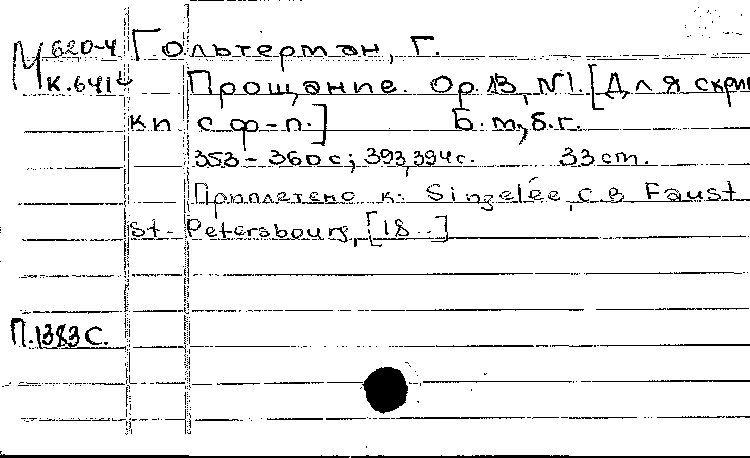 М 620-4 Гольтерман, Г.
К.641
Прощание. Op.13, №1. [Для скрип
ки с ф-п.] Б.м., б.г.
353-360 с; 393,394 с. 33 cm.
Приплетено к: Singelée, С.В Faust
St.-Petersbourg, [18..]
П.1383 С.